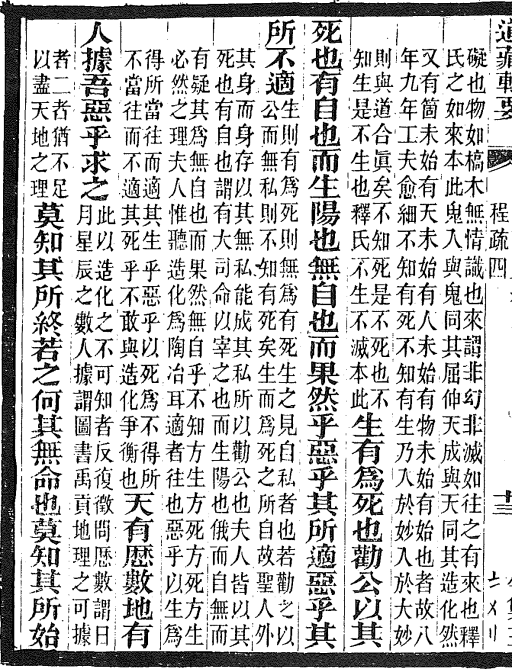 道藏輯要
程疏四
十三
礙也物如槁木無情識也來謂非幻非滅如往之有來也釋
氏之如來本此鬼入與鬼同其屈伸天成與天同其造化然
又有箇未始有天未始有人未始有物未始有始也者故八
年九年工夫愈細不知有死不知有生乃入於妙入於大妙
則與道合眞矣不知死是不死也不
知生是不生也釋氏不生不滅本此
生有爲死也勸公以其
死也有自也而生陽也無自也而果然乎惡乎其所適惡乎其
所不適
生則有爲死則無爲有死生之見自私者也若勸之以
公而無私則不知有死矣生而爲死之所自故聖人外
其身而身存以其無私能成其私所以勸公也夫人皆以其
死也有自也謂有大司命以宰之也而生陽也俄而自無而
有疑其爲無自也而果然無自乎不知方生方死方死方生
必然之理夫人惟聽造化爲陶冶耳適者往也惡乎以生爲
得所當往而適其生乎惡乎以死爲不得所
不當往而不適其死乎不敢與造化爭衡也
天有歷數地有
人據吾惡乎求之
此以造化之不可知者反復徵問歷數謂日
月星辰之數人據謂圖書禹貢地理之可據
者二者猶不足
以盡天地之理
莫知其所終若之何其無命也莫知其所始